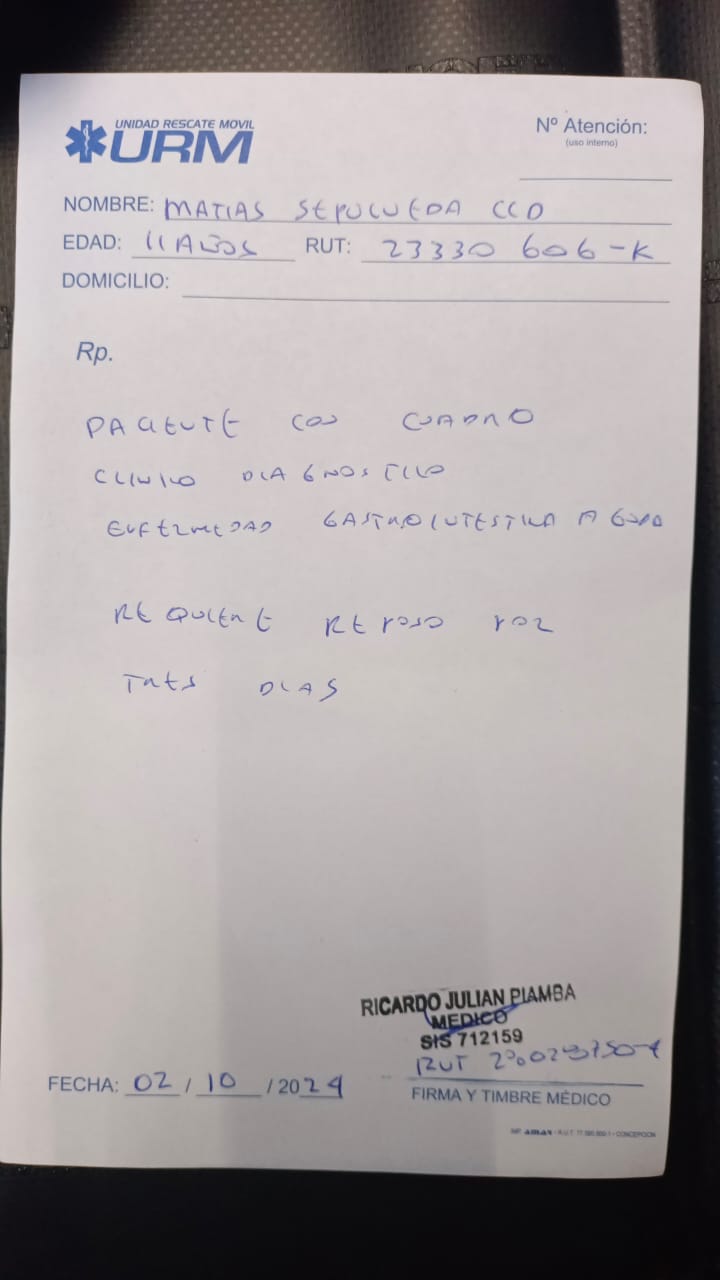 UNIDAD RESCATE MOVIL
URM
Nº Atención:
(uso interno)
NOMBRE: MATIAS SEPULVEDA CCD
EDAD: 11 AÑOS RUT: 23330 606-K
DOMICILIO:
Rp.
PACIENTE CON CUADRO
CLINICO DIAGNOSTICO
ENFERMEDAD GASTROINTESTINAL AGUDA
REQUIERE REPOSO POR
TRES DIAS
RICARDO JULIAN PIAMBA
MEDICO
SIS 712159
RUT
FECHA: 02 / 10 / 2024
FIRMA Y TIMBRE MÉDICO